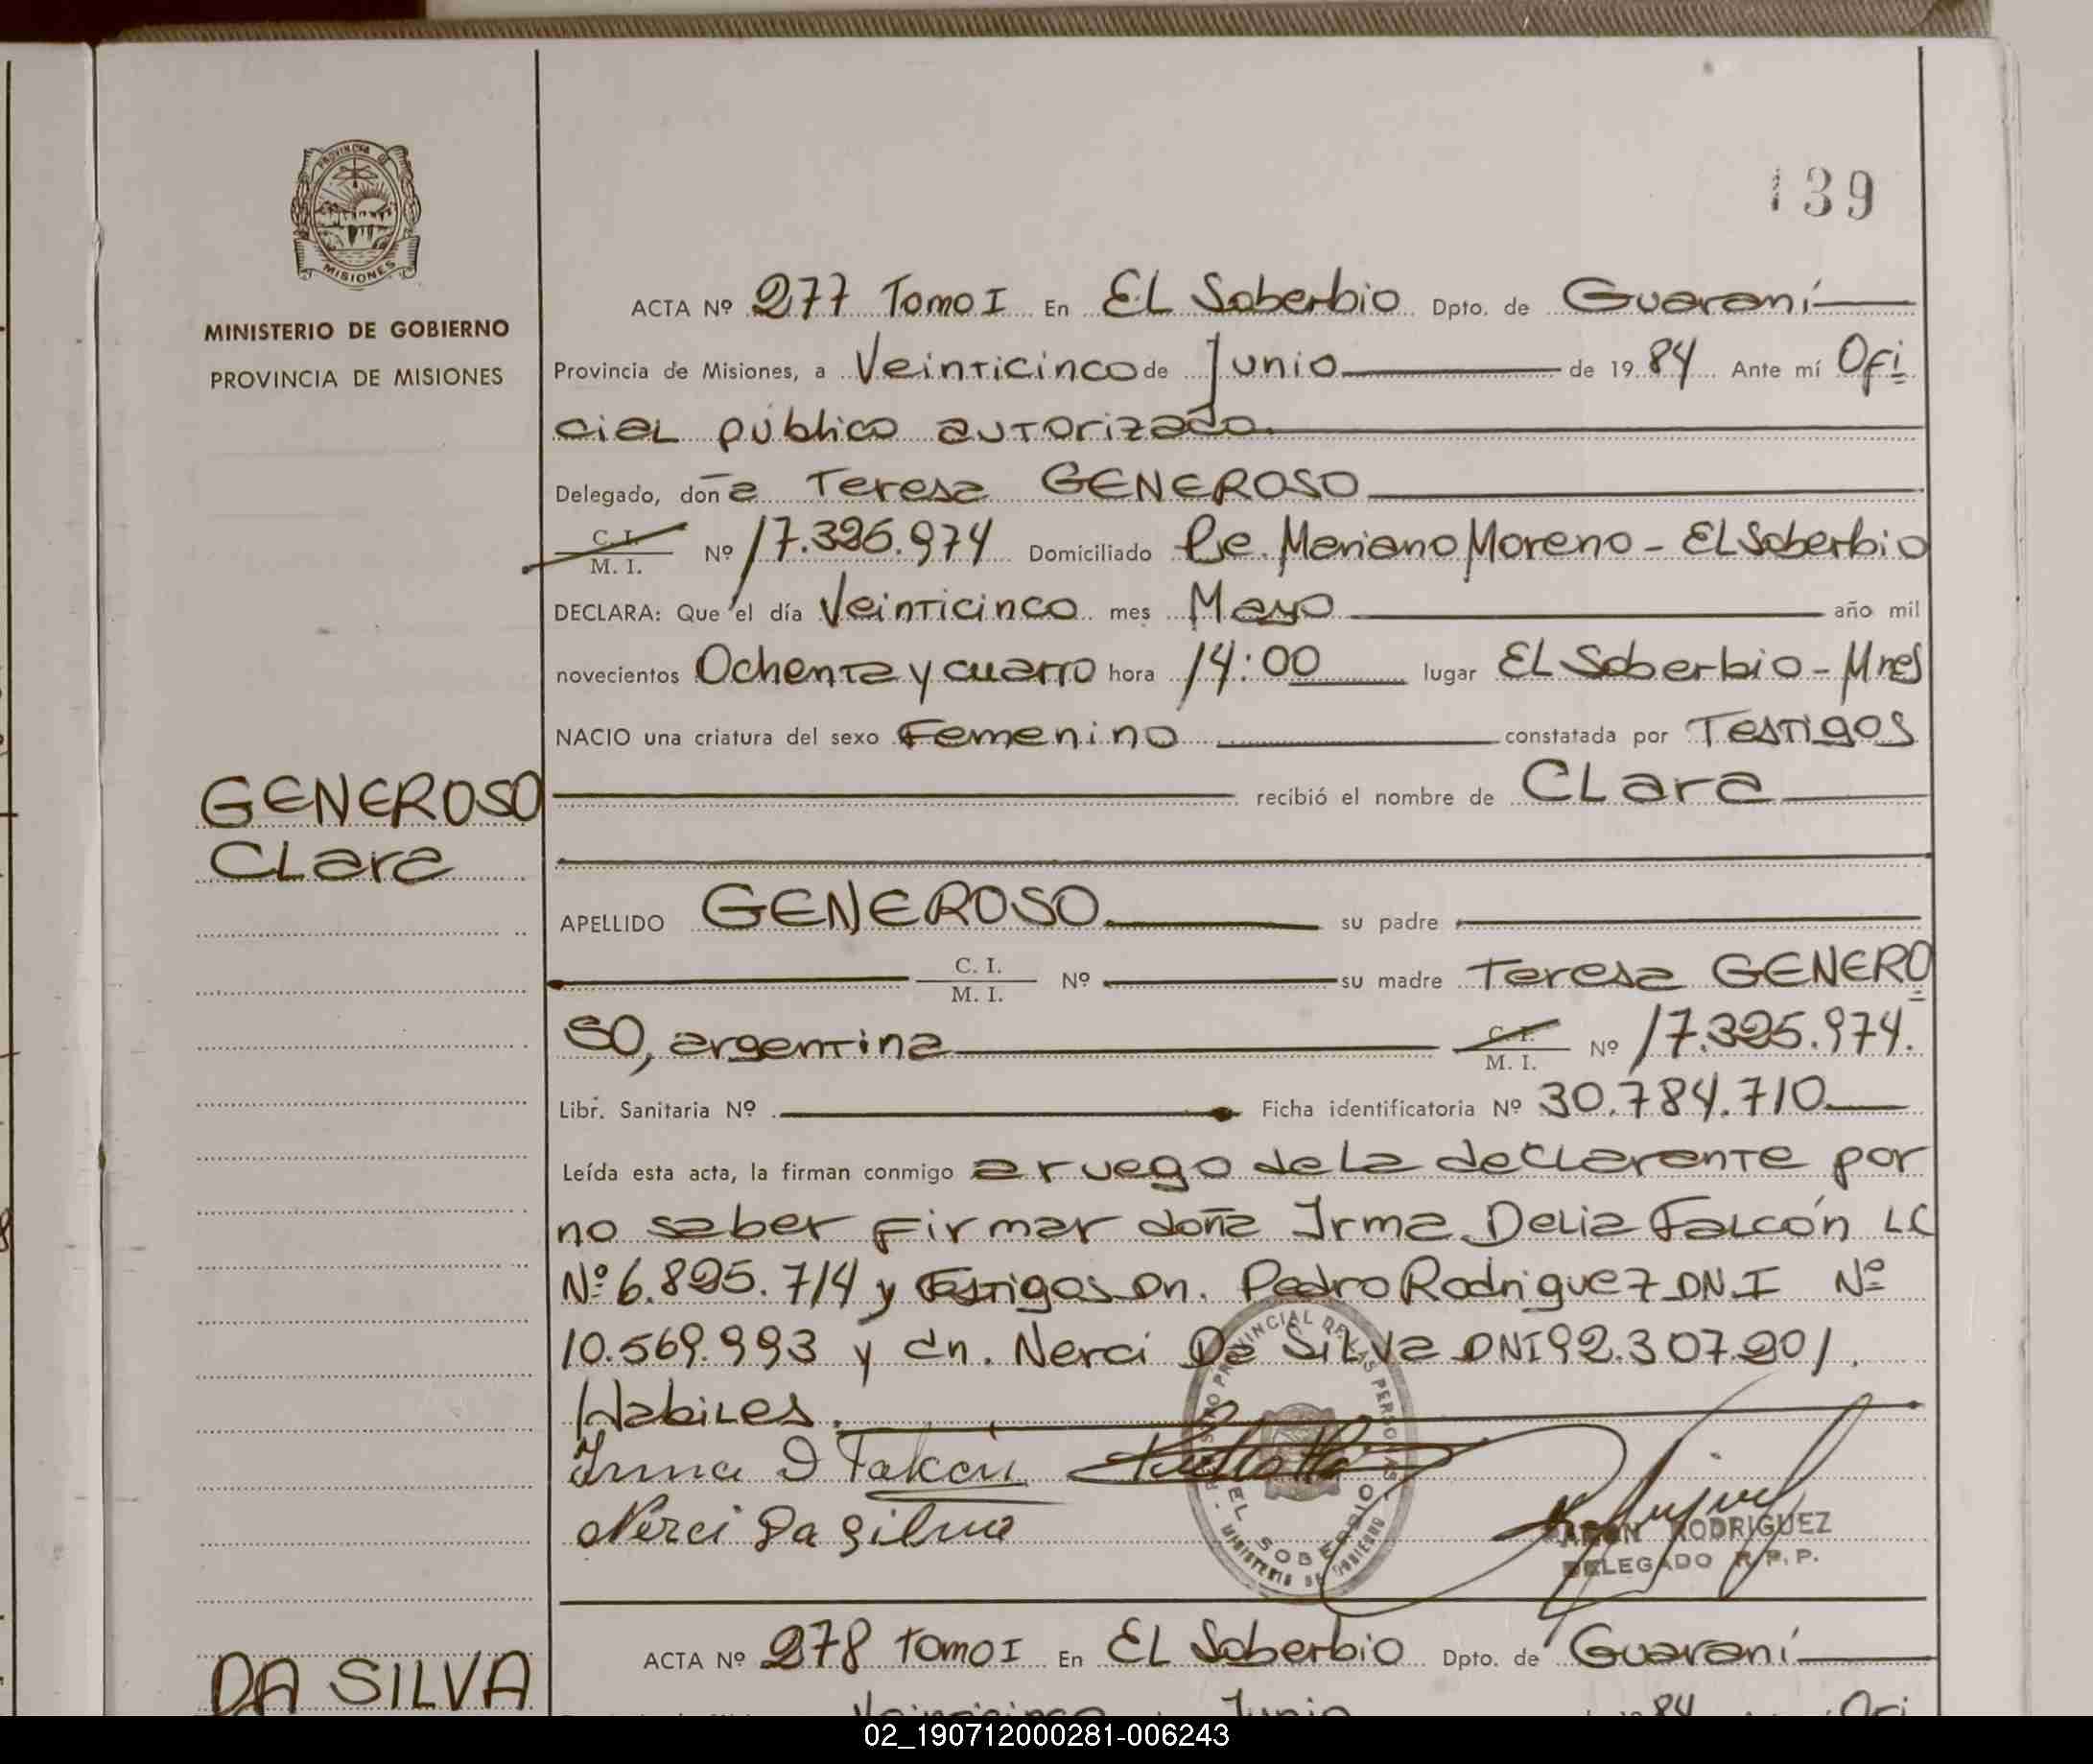 139
PROVINCIA DE
MISIONES
MINISTERIO DE GOBIERNO
PROVINCIA DE MISIONES
ACTA Nº 277 Tomo I En EL Soberbio Dpto. de Guaraní
Provincia de Misiones, a Veinticinco de Junio de 1984 Ante mí Ofi
cial público autorizado.
Delegado, doña Teresa GENEROSO
C. I.
M. I. Nº 17.326.974 Domiciliado Pje. Mariano Moreno - EL Soberbio
DECLARA: Que el día Veinticinco mes Mayo año mil
novecientos Ochenta y cuatro hora 14:00 lugar EL Soberbio - Mnes
NACIO una criatura del sexo Femenino constatada por Testigos
GENEROSO
Clara
recibió el nombre de CLara
APELLIDO GENEROSO. su padre
C. I.
M. I. Nº su madre Teresa GENERO
SO, argentina C. I.
M. I. Nº 17.325.974.
Libr. Sanitaria Nº Ficha identificatoria Nº 30.784.710
Leída esta acta, la firman conmigo a ruego de la declarante por
no saber firmar doña Irma Delia Falcón LC
Nº 6.825.714 y Testigos Dn. Pedro Rodriguez DN.I Nº
10.569.993 y dn. Nerci Da Silva DNI 92.307.201.
Habiles.
Irma D Falcón
Nerci Da Silva
REGISTRO PROVINCIAL DE LAS PERSONAS
EL SOBERBIO
MINISTERIO DE GOBIERNO
RAMON RODRIGUEZ
DELEGADO R.P.P.
ACTA Nº 278 Tomo I En EL Soberbio Dpto. de Guaraní
DA SILVA
Veinticinco Junio 84 Ofi
02_190712000281-006243